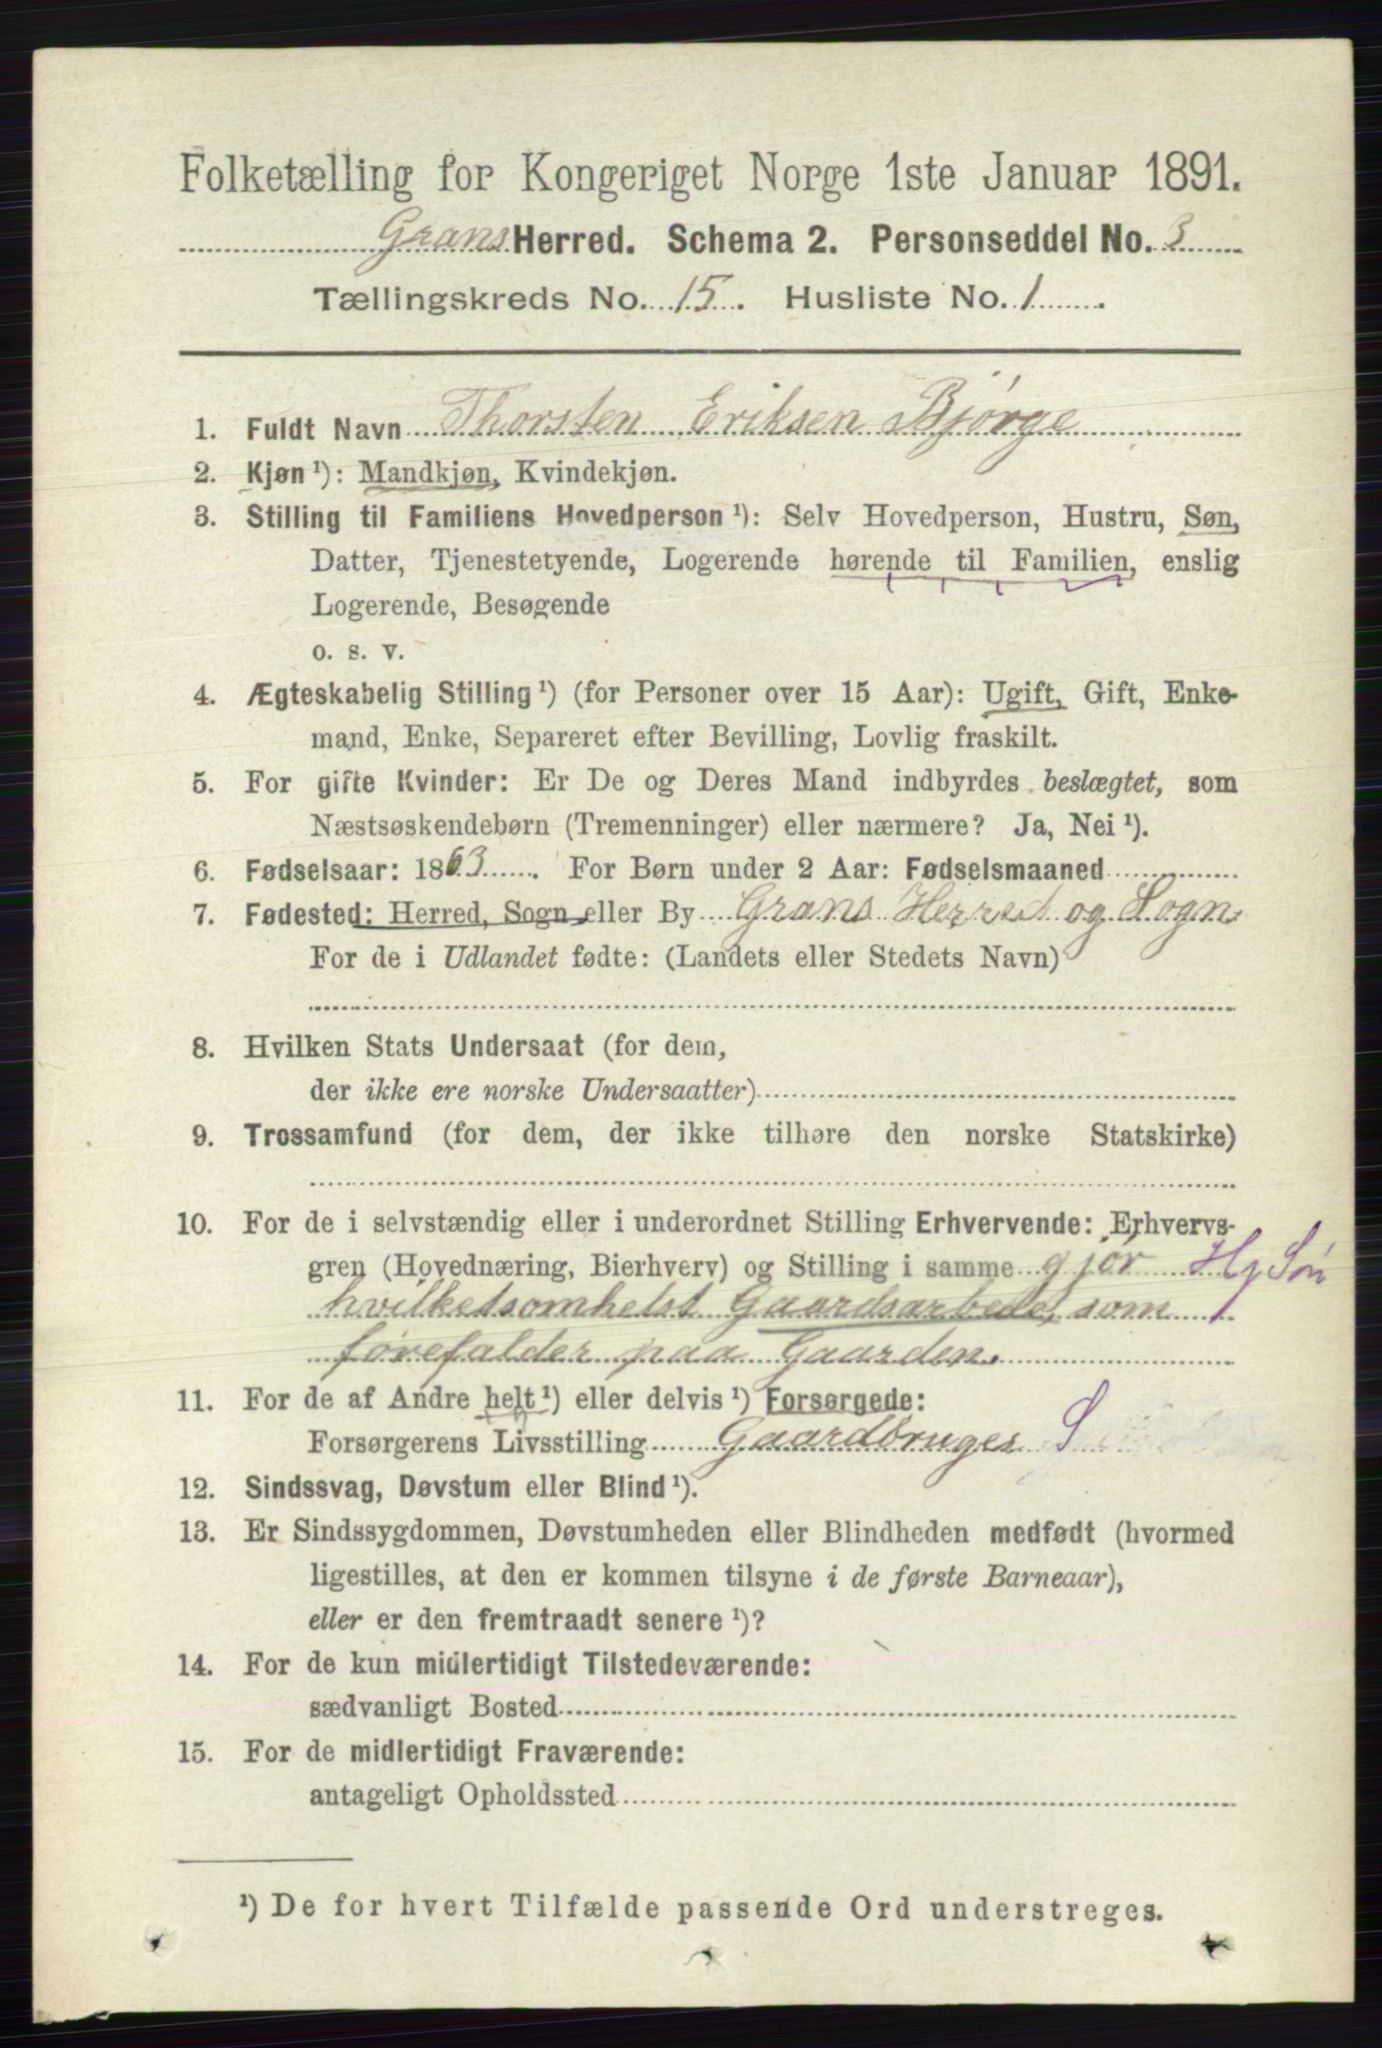 Folketælling for Kongeriget Norge 1ste Januar 1891.
Grans Herred. Schema 2. Personseddel No. 3
Tællingskreds No. 15. Husliste No. 1.
1. Fuldt Navn Thorsten Eriksen Bjørge
2. Kjøn ¹): Mandkjøn, Kvindekjøn.
3. Stilling til Familiens Hovedperson ¹): Selv Hovedperson, Hustru, Søn,
Datter, Tjenestetyende, Logerende hørende til Familien, enslig
Logerende, Besøgende
o. s. v.
4. Ægteskabelig Stilling ¹) (for Personer over 15 Aar): Ugift, Gift, Enke-
mand, Enke, Separeret efter Bevilling, Lovlig fraskilt.
5. For gifte Kvinder: Er De og Deres Mand indbyrdes beslægtet, som
Næstsøskendebørn (Tremenninger) eller nærmere? Ja, Nei ¹).
6. Fødselsaar: 1863. For Børn under 2 Aar: Fødselsmaaned
7. Fødested: Herred, Sogn eller By Grans Herred og Sogn
For de i Udlandet fødte: (Landets eller Stedets Navn)
8. Hvilken Stats Undersaat (for dem,
der ikke ere norske Undersaatter)
9. Trossamfund (for dem, der ikke tilhøre den norske Statskirke)
10. For de i selvstændig eller i underordnet Stilling Erhvervende: Erhvervs-
gren (Hovednæring, Bierhverv) og Stilling i samme gjør Hj Søn
hvilketsomhelst Gaardsarbede, som
forefalder paa Gaarden.
11. For de af Andre helt ¹) eller delvis ¹) Forsørgede:
Forsørgerens Livsstilling Gaardbruger S
12. Sindssvag, Døvstum eller Blind ¹).
13. Er Sindssygdommen, Døvstumheden eller Blindheden medfødt (hvormed
ligestilles, at den er kommen tilsyne i de første Barneaar),
eller er den fremtraadt senere ¹)?
14. For de kun midlertidigt Tilstedeværende:
sædvanligt Bosted
15. For de midlertidigt Fraværende:
antageligt Opholdssted
¹) De for hvert Tilfælde passende Ord understreges.